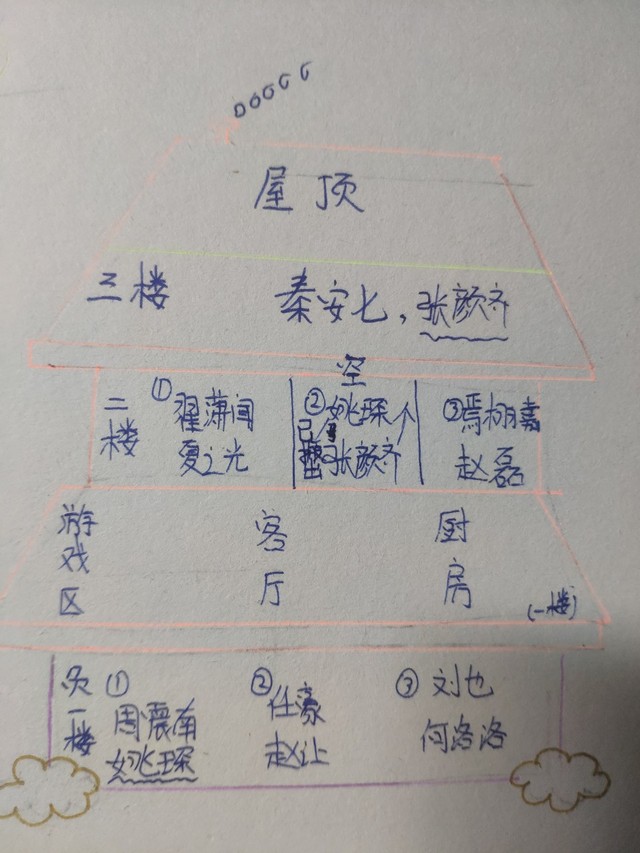 屋顶
三楼
秦安七，张颜齐
空
二楼
①翟潇闻
夏之光
②姚琛
已
张颜齐
③焉栩嘉
赵磊
游戏区
客厅
厨房
(一楼)
负一楼
①
周震南
姚琛
②
任豪
赵让
③刘也
何洛洛